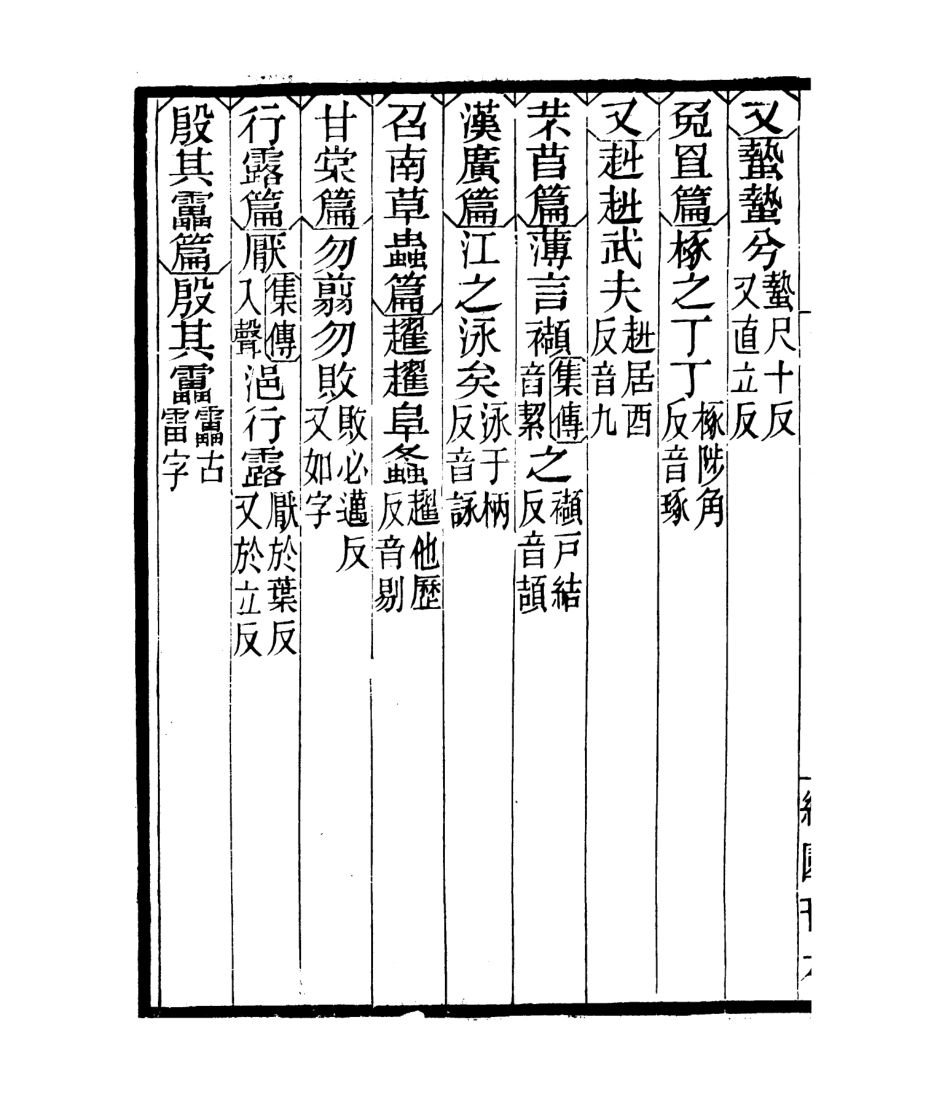 又蟄蟄兮蟄尺十反又直立反
兎罝篇椓之丁丁椓陟角反音琢
又赳赳武夫赳居酉反音九
芣苢篇薄言襭集傳音絜之襭戸結反音頡
漢廣篇江之泳矣泳于柄反音詠
召南草蟲篇趯趯阜螽趯他歷反音剔
甘棠篇勿翦勿敗敗必邁反又如字
行露篇厭集傳入聲浥行露厭於葉反又於立反
殷其靁篇殷其靁靁古雷字